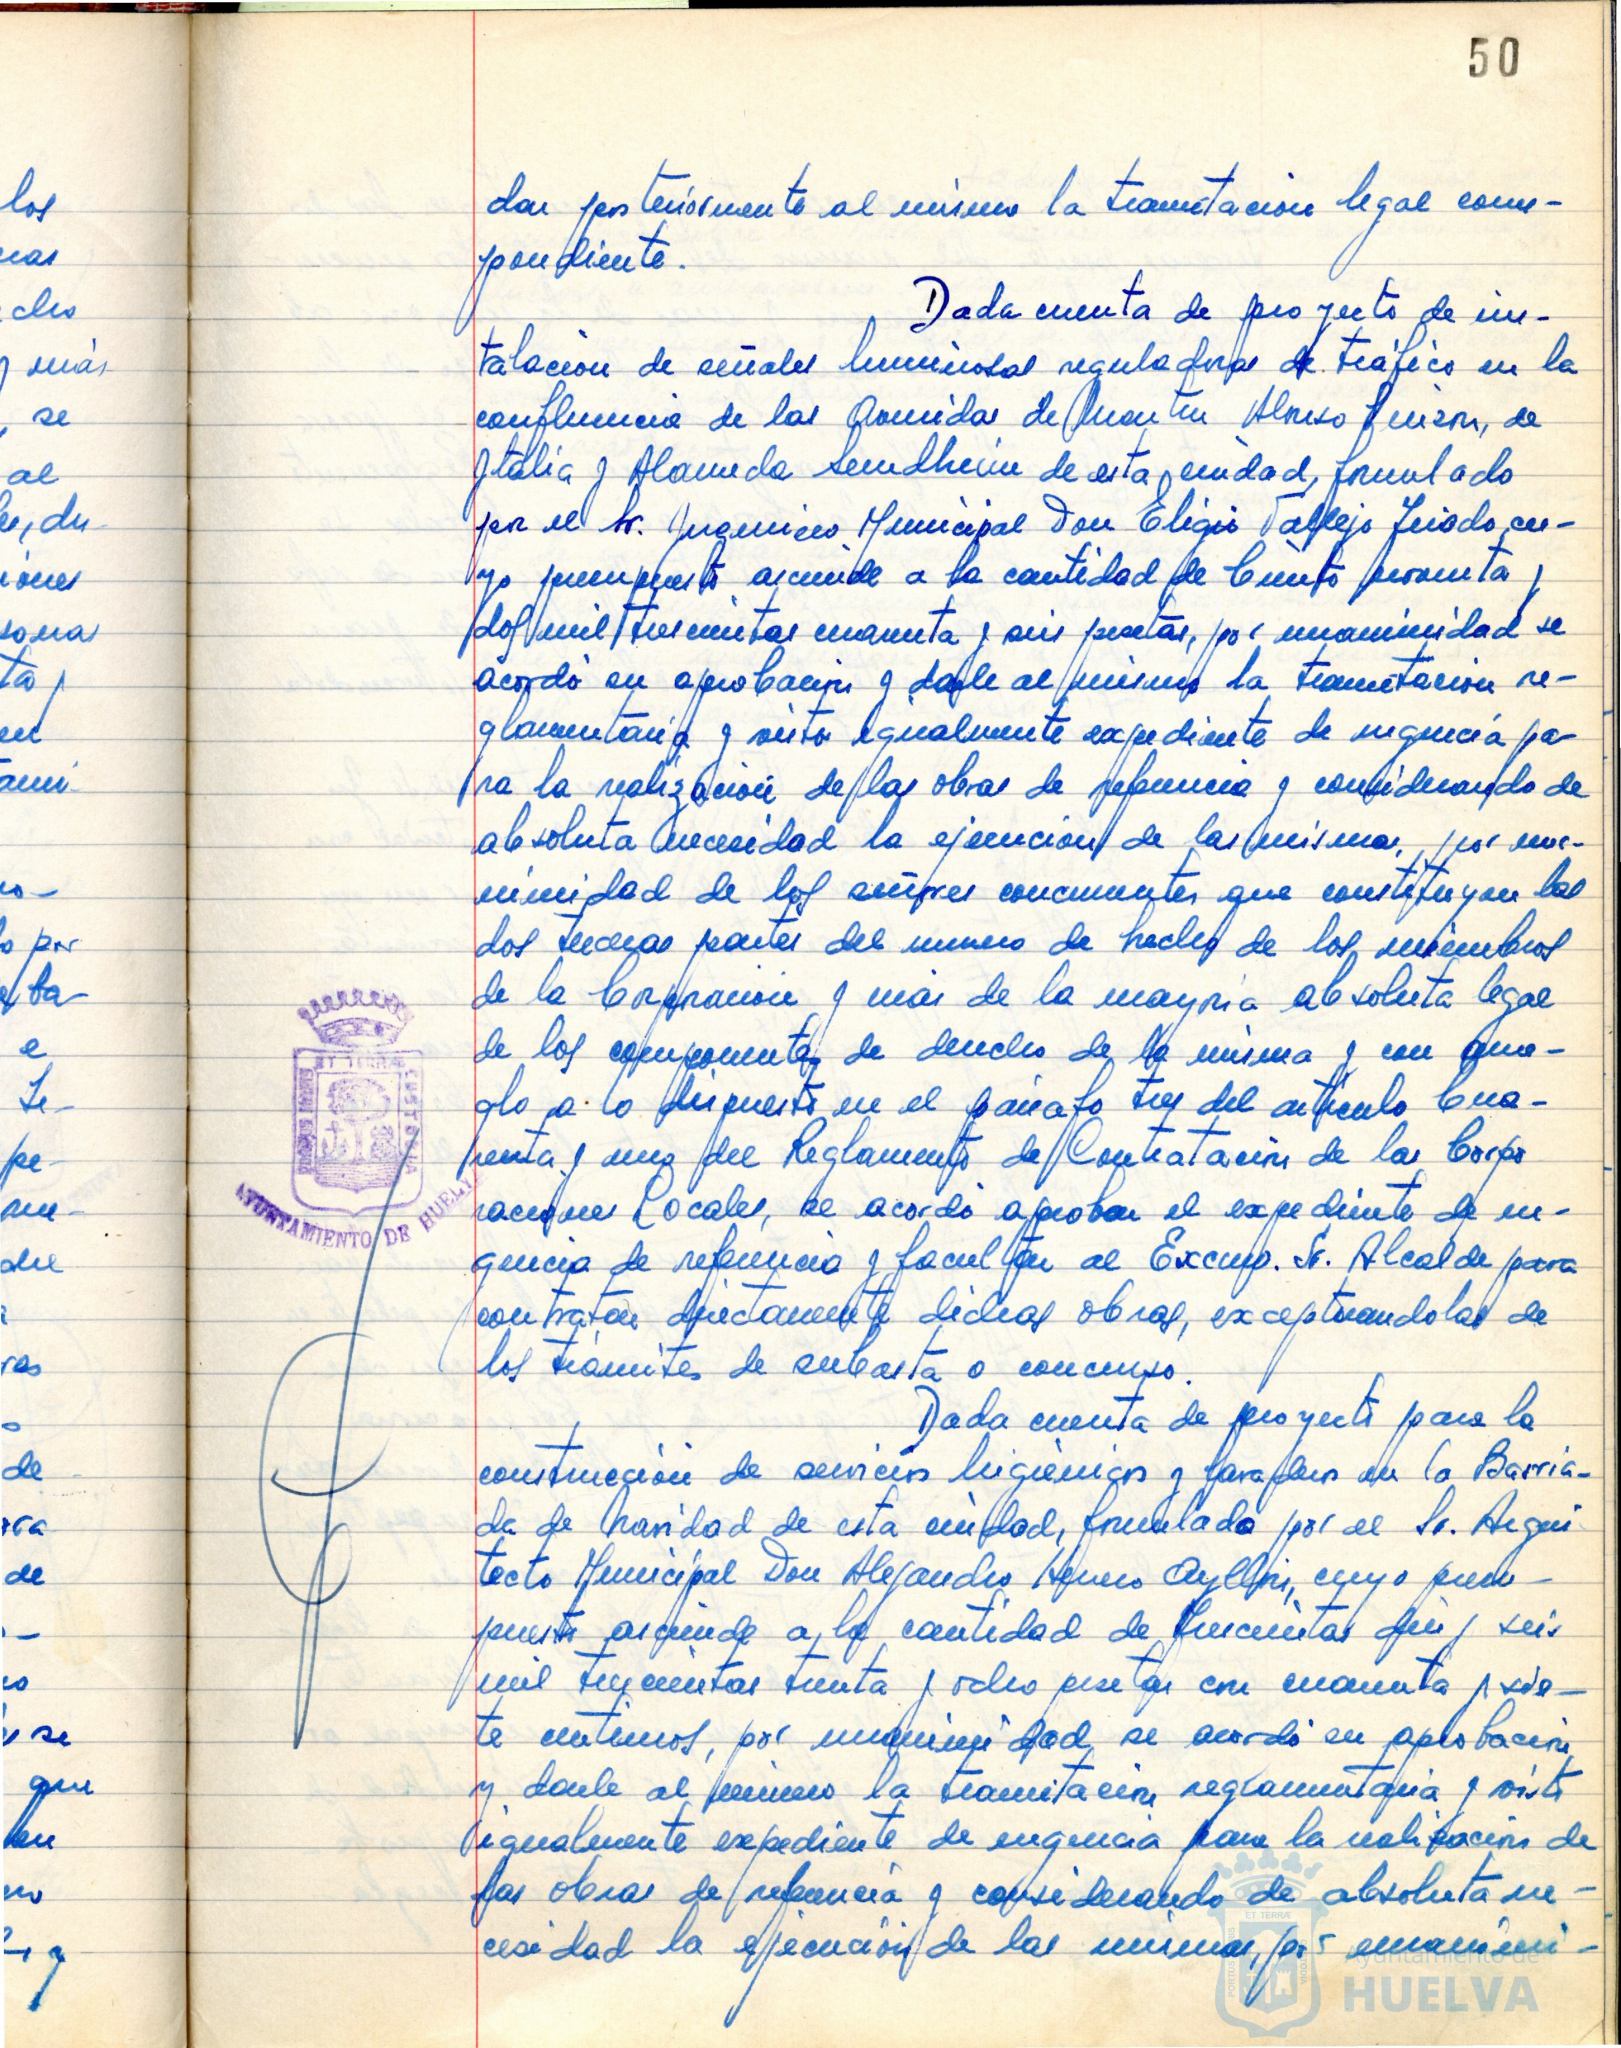 50
dar posteriormente al mismo la tramitación legal corres-
pondiente.
Dada cuenta de proyecto de ins-
talación de señales luminosas reguladoras de tráfico en la
confluencia de las Avenidas de Martin Alonso Pinzon, de
Italia y Alameda Sundheim de esta ciudad, formulado
por el Sr. Ingeniero Municipal Don Eligio Vallejo cu-
yo presupuesto asciende a la cantidad de Ciento noventa y
dos mil trescientas cuarenta y seis pesetas, por unanimidad se
acordó su aprobación y darle al mismo la tramitación re-
glamentaria y visto igualmente expediente de urgencia pa-
ra la realización de las obras de referencia y considerando de
absoluta necesidad la ejecución de las mismas, por una-
nimidad de los señores concurrentes que constituyen las
dos terceras partes del numero de hecho de los miembros
de la Corporación y más de la mayoría absoluta legal
de los componentes de derecho de la misma y con arre-
glo a lo dispuesto en el párrafo tres del artículo Cua-
renta y uno del Reglamento de Contratación de las Corpo
raciones Locales, se acordó aprobar el expediente de ur-
gencia de referencia y facultar al Excmo. Sr. Alcalde para
contratar directamente dichas obras, exceptuandolas de
los trámites de subasta o concurso.
Dada cuenta de proyecto para la
construcción de servicios higiénicos y lavaderos en la Barria-
da de Navidad de esta ciudad, formulado por el Sr. Arqui
tecto Municipal Don Alejandro Herrero Ayllón, cuyo presu-
puesto asciende a la cantidad de Trescientas diez y seis
mil trescientas treinta y ocho pesetas con cuarenta y sie-
te centimos, por unanimidad se acordó su aprobación
y darle al mismo la tramitación reglamentaria y visto
igualmente expediente de urgencia para la realización de
las obras de referencia y considerando de absoluta ne-
cesidad la ejecución de las mismas, por unanimi-
AYUNTAMIENTO DE HUELVA
ET TERRÆ
CUSTODIA
los
y más
se
al
iones
por
ba-
e
pe-
de
de
se
que
y
ET TERRÆ
Ayuntamiento de
HUELVA